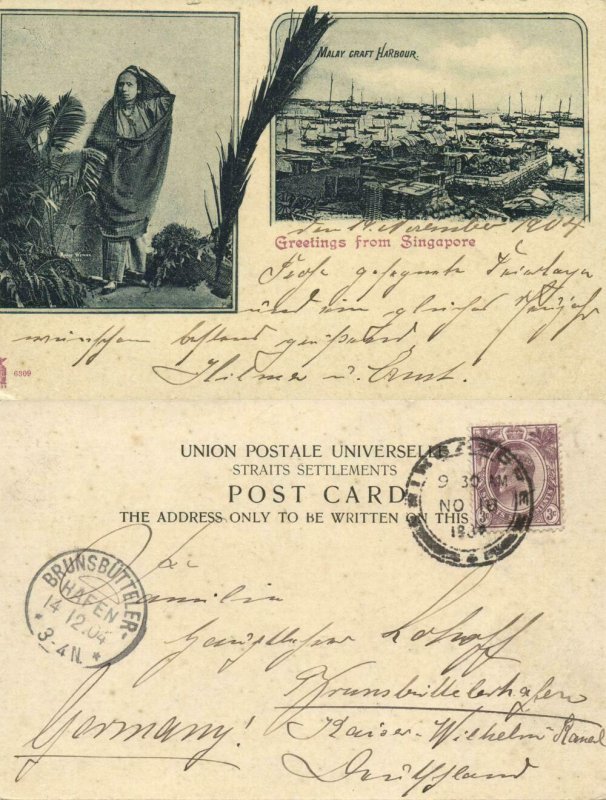 MALAY CRAFT HARBOUR.
Malay Woman
den 14 November 1904
Greetings from Singapore
Frohe gesegnete Feiertage
und ein gleiches Neujahr
wünschen bestens grüßend
Hilmer u. Ernst.
6309
UNION POSTALE UNIVERSELLE
STRAITS SETTLEMENTS
POST CARD
THE ADDRESS ONLY TO BE WRITTEN ON THIS
SINGAPORE
9 30 AM
NO 16
1904
3c
BRUNSBÜTTELER-
HAFEN
14 12.04
* 3-4N. *
Familie
Hauptlehrer
Brunsbüttelerhafen
Kaiser-Wilhelm-Kanal
Germany!
Deutschland